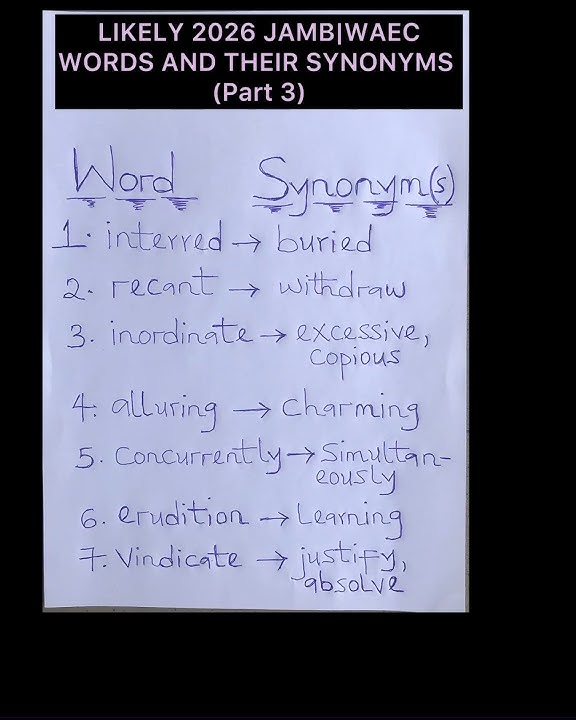 LIKELY 2026 JAMB|WAEC
WORDS AND THEIR SYNONYMS
(Part 3)
Word Synonym(s)
1. interred → buried
2. recant → withdraw
3. inordinate → excessive,
copious
4. alluring → charming
5. Concurrently → Simultan-
eously
6. erudition → Learning
7. Vindicate → justify,
absolve